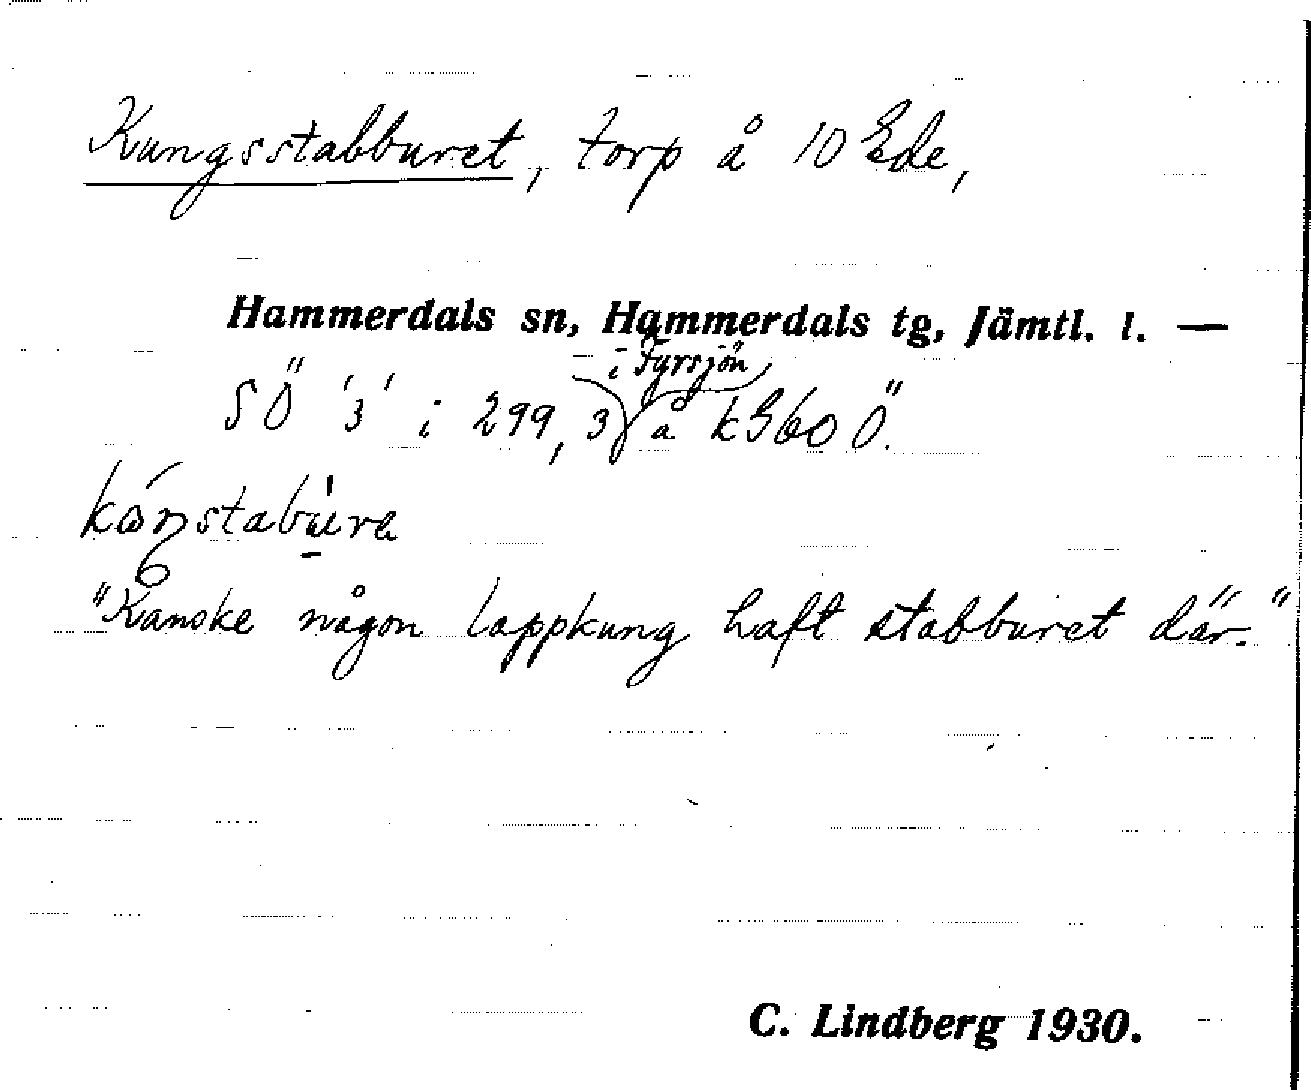 Kungsstabburet, torp å 10 Ede,
Hammerdals sn, Hammerdals tg, Jämtl. l. —
i Fyrsjön
SÖ '3' i 299,3 å k 360 Ö.
"Kanske någon lappkung haft stabburet där."
C. Lindberg 1930.